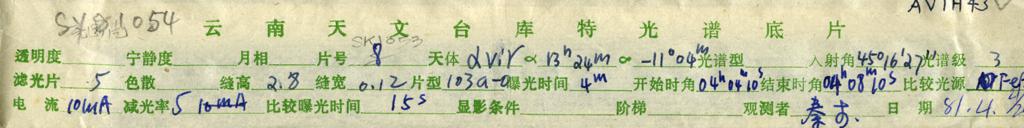 1054 云南天文台库特光谱底片
透明度 宁静度 月相 片号 8 天体 αvir α 13ʰ24ᵐ α -11°04ᵐ 光谱型 入射角 45°16′27″ 光谱级 3
滤光片 5 色散 缝高 2.8 缝宽 0.12 片型 103a-o 曝光时间 4ᵐ 开始时角 04ʰ04ᵐ10ˢ 结束时角 04ʰ08ᵐ10ˢ 比较光源
电流 10mA 减光率 5 10mA 比较曝光时间 15ˢ 显影条件 阶梯 观测者 日期 81.4.